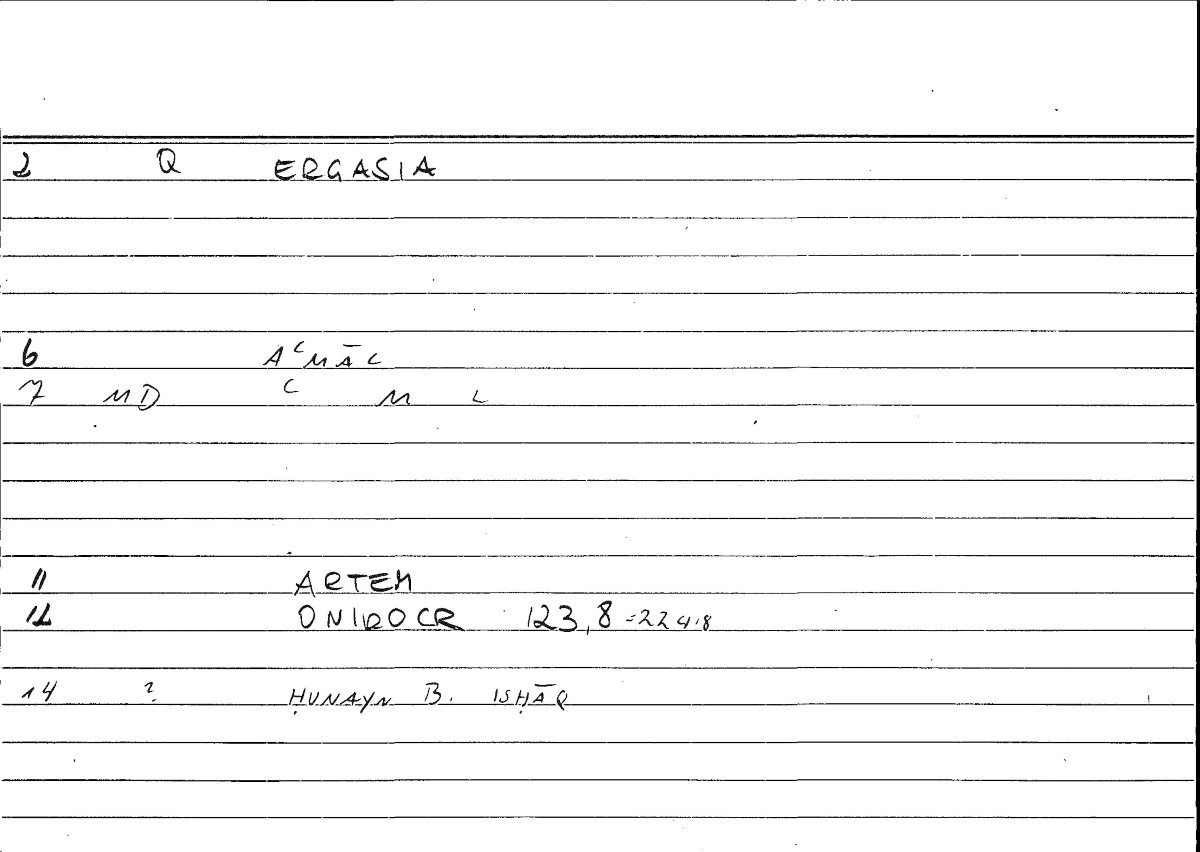 2 Q ERGASIA
6 AʿMĀL
7 MD ʿ M L
11 ARTEM
12 ONIROCR 123,8 =224.8
14 ? ḤUNAYN B. ISḤĀQ